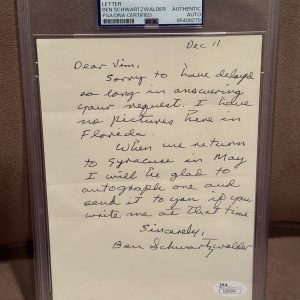 LETTER
BEN SCHWARTZWALDER
PSA/DNA CERTIFIED
AUTHENTIC
AUTO
PSA
Dec 11
Dear Jim,
Sorry to have delayed
so long in answering
your request. I have
no pictures here in
Florida.
When we return
to Syracuse in May
I will be glad to
autograph one and
send it to you if you
write me at that time
Sincerely,
Ben Schwartzwalder